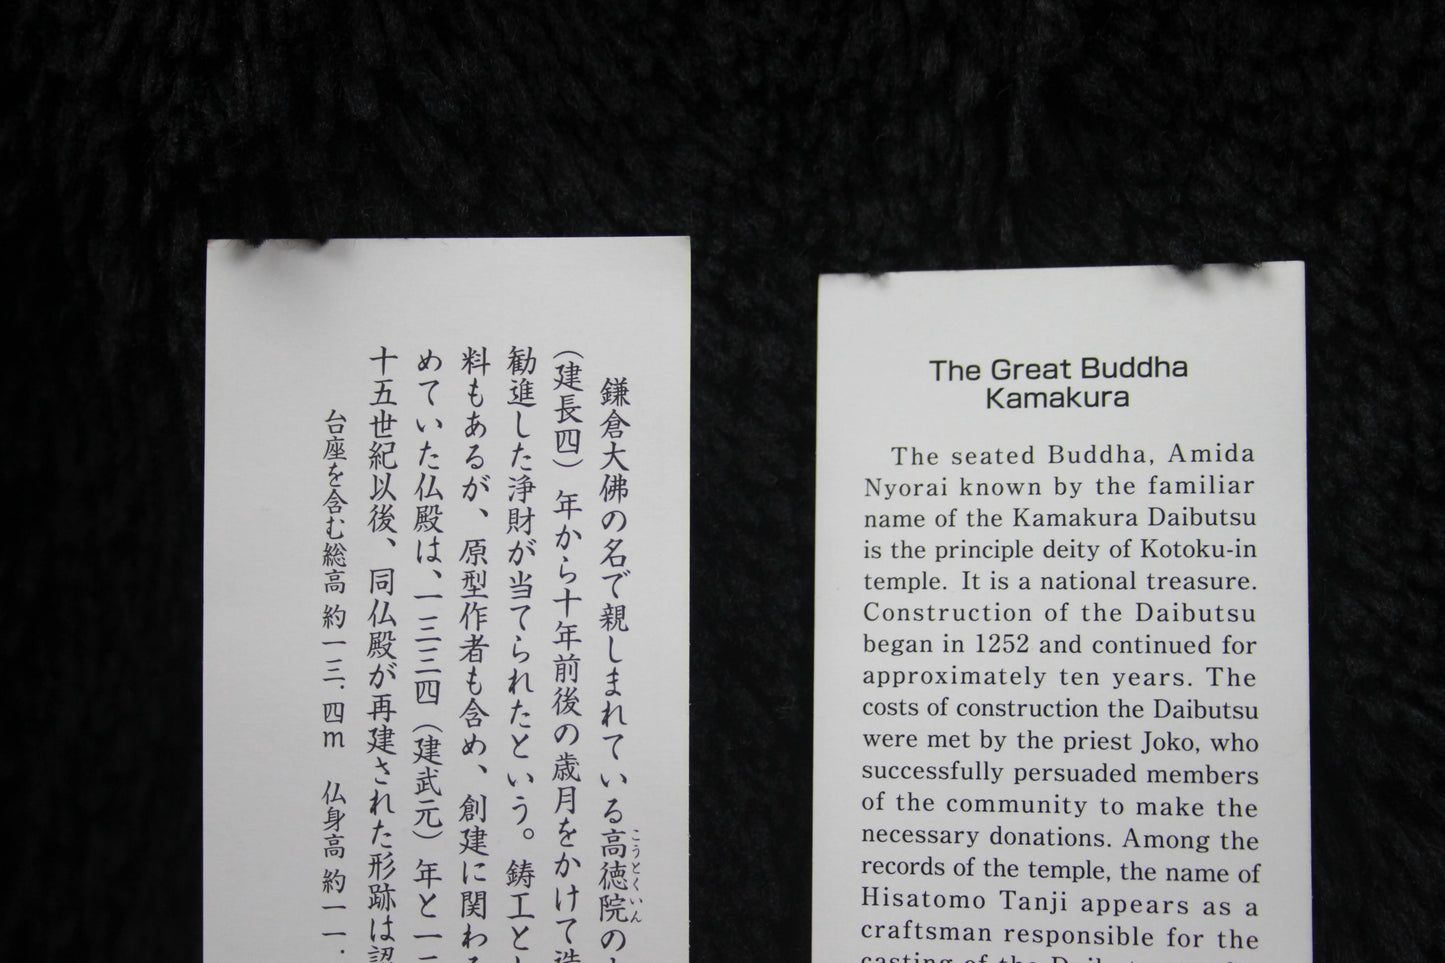 鎌倉大佛の名で親しまれている高徳院の
こうとくいん
（建長四）年から十年前後の歳月をかけて造
勧進した浄財が当てられたという。鋳工と
料もあるが、原型作者も含め、創建に関わ
めていた仏殿は、一三三四（建武元）年と一三
十五世紀以後、同仏殿が再建された形跡は認
台座を含む総高 約一三．四m 仏身高 約一一．
The Great Buddha
Kamakura
The seated Buddha, Amida
Nyorai known by the familiar
name of the Kamakura Daibutsu
is the principle deity of Kotoku-in
temple. It is a national treasure.
Construction of the Daibutsu
began in 1252 and continued for
approximately ten years. The
costs of construction the Daibutsu
were met by the priest Joko, who
successfully persuaded members
of the community to make the
necessary donations. Among the
records of the temple, the name of
Hisatomo Tanji appears as a
craftsman responsible for the
casting of the